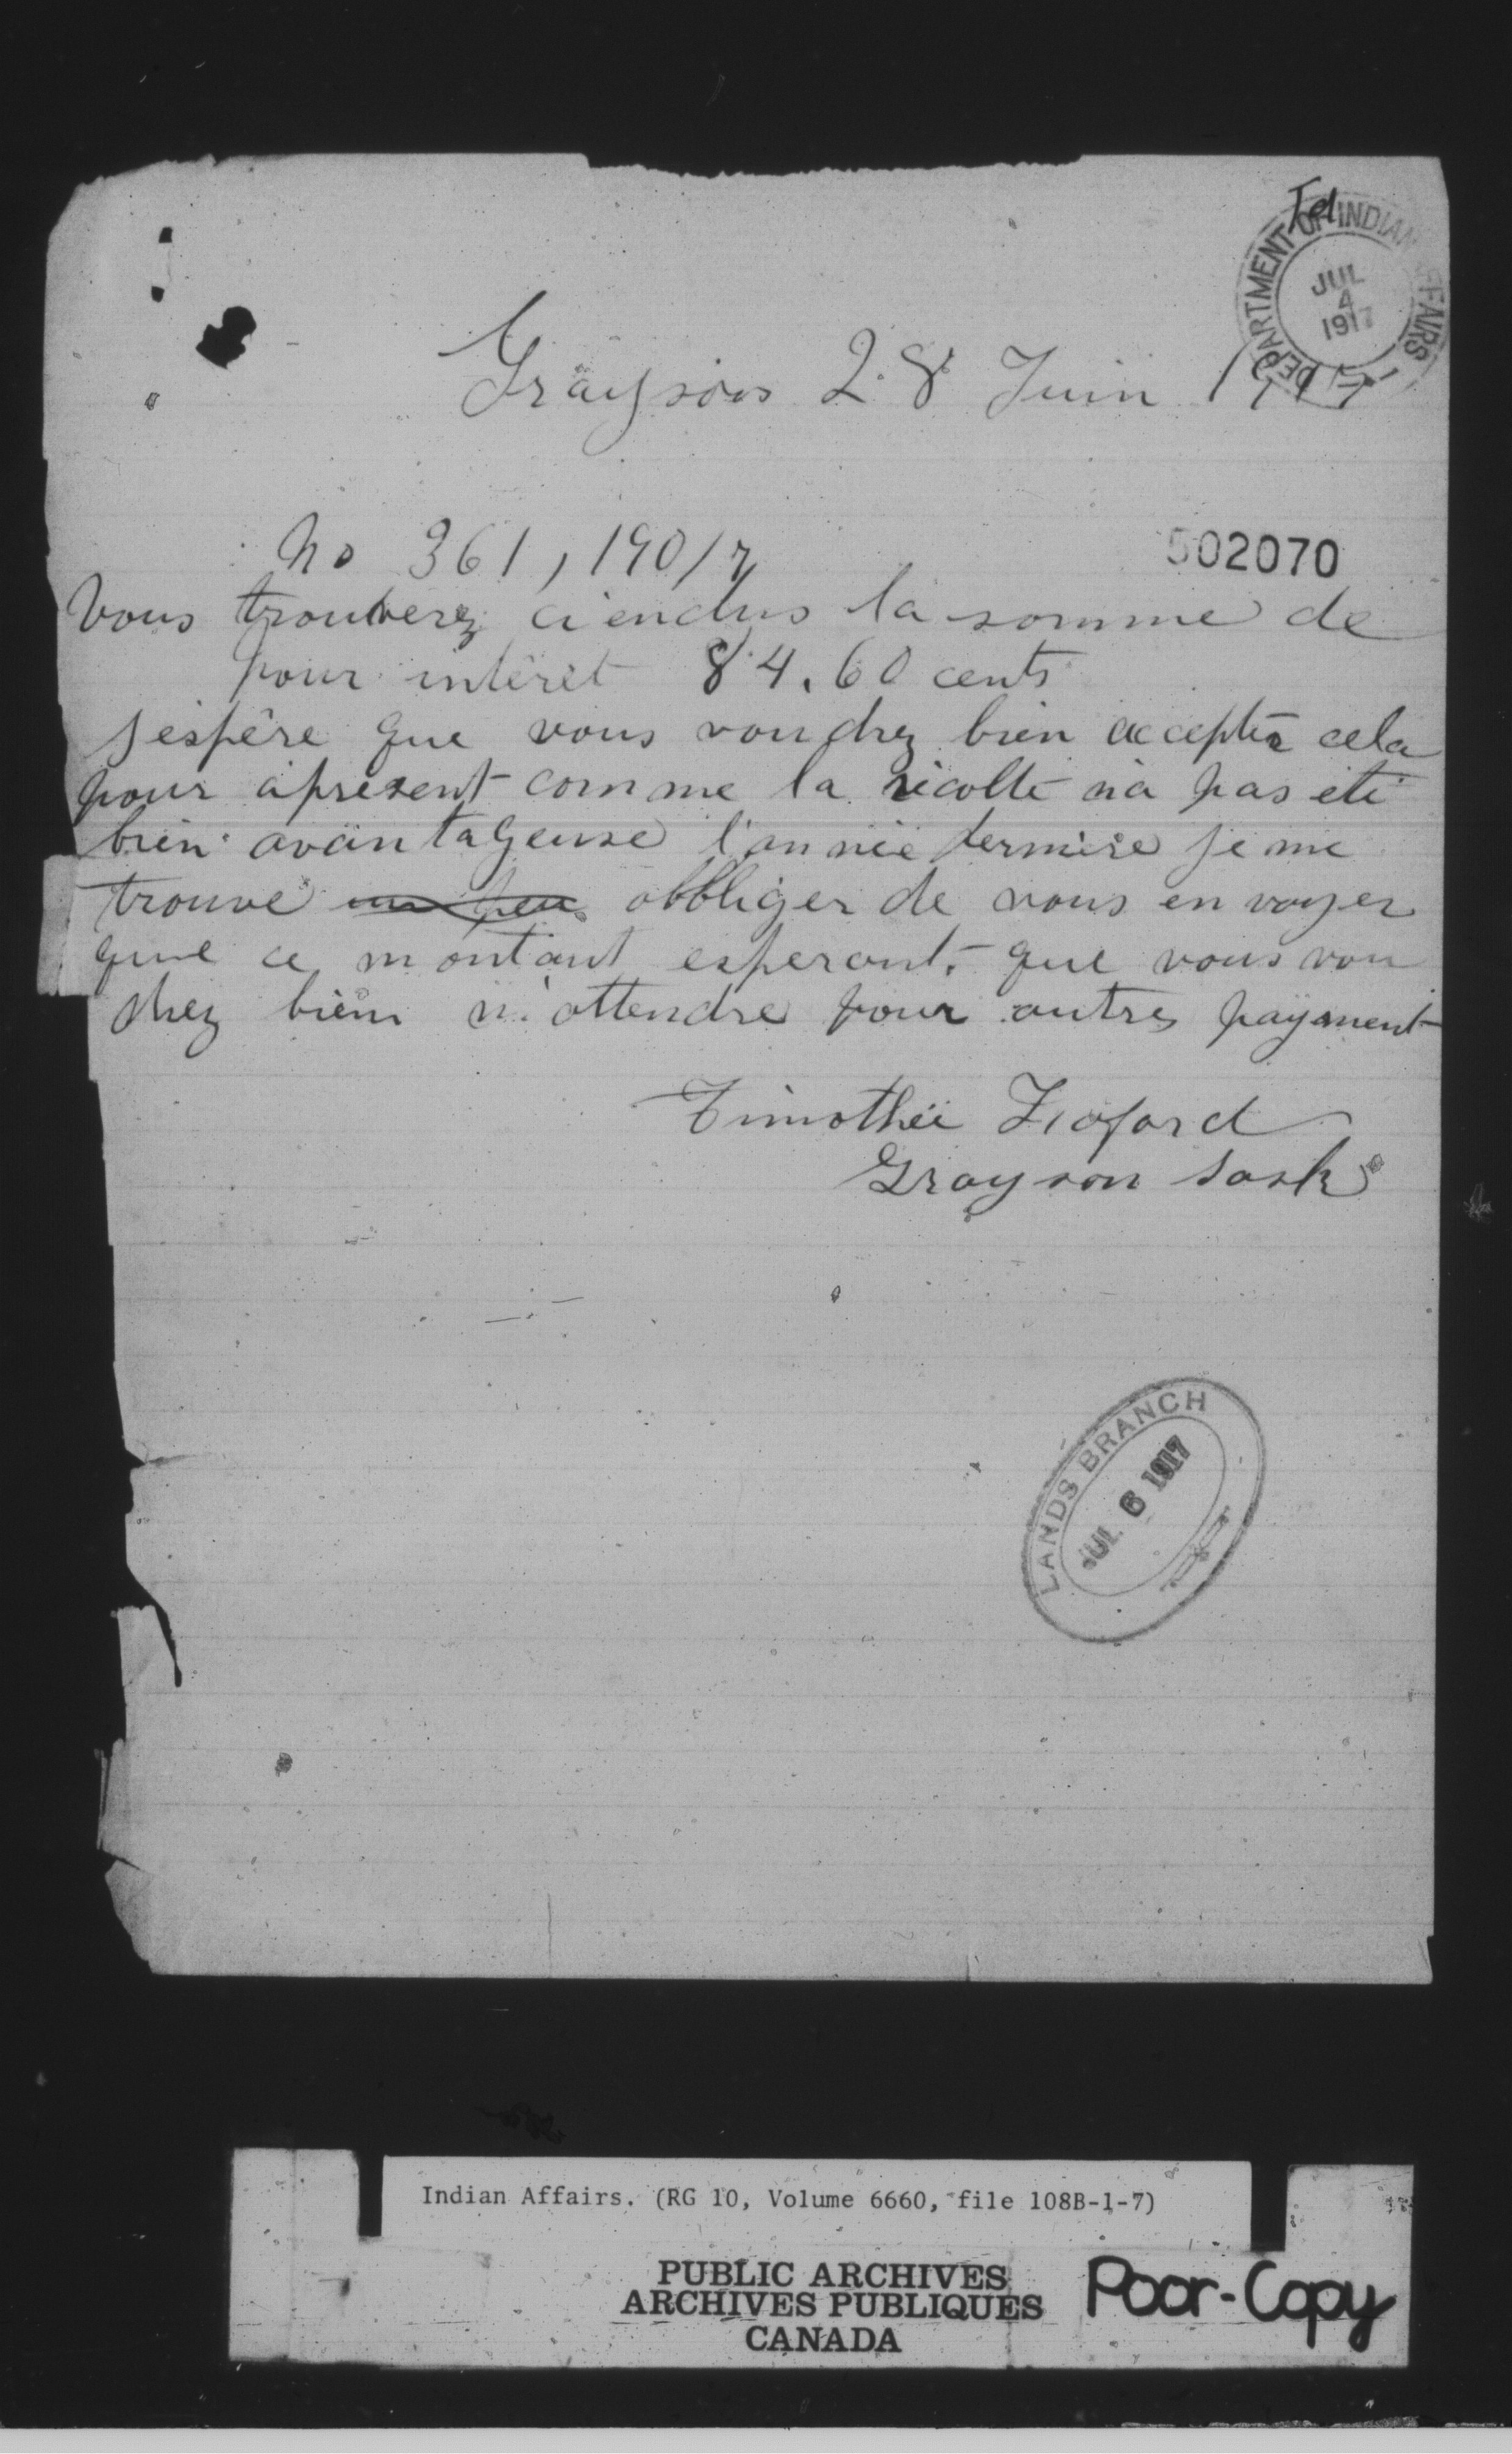 Fd
DEPARTMENT OF INDIAN AFFAIRS
JUL
4
1917
Grayson 28 Juin 1917
No 361,190/7
502070
Vous trouverez ci endus la somme de
pour intérèt 84.60 cents
J'espère que vous voudrez bien accepter cela
pour apresent comme la récolte n'a pas été
bien avantageuse l'année dernière je me
trouve un peu obbliger de vous envoyer
que ce montant esperant que vous vou
drez bien m'attendre pour autres payment
Timothée
Grayson Sask
LANDS BRANCH
JUL 6 1917
Indian Affairs. (RG 10, Volume 6660, file 108B-1-7)
PUBLIC ARCHIVES
ARCHIVES PUBLIQUES
CANADA
Poor-Copy